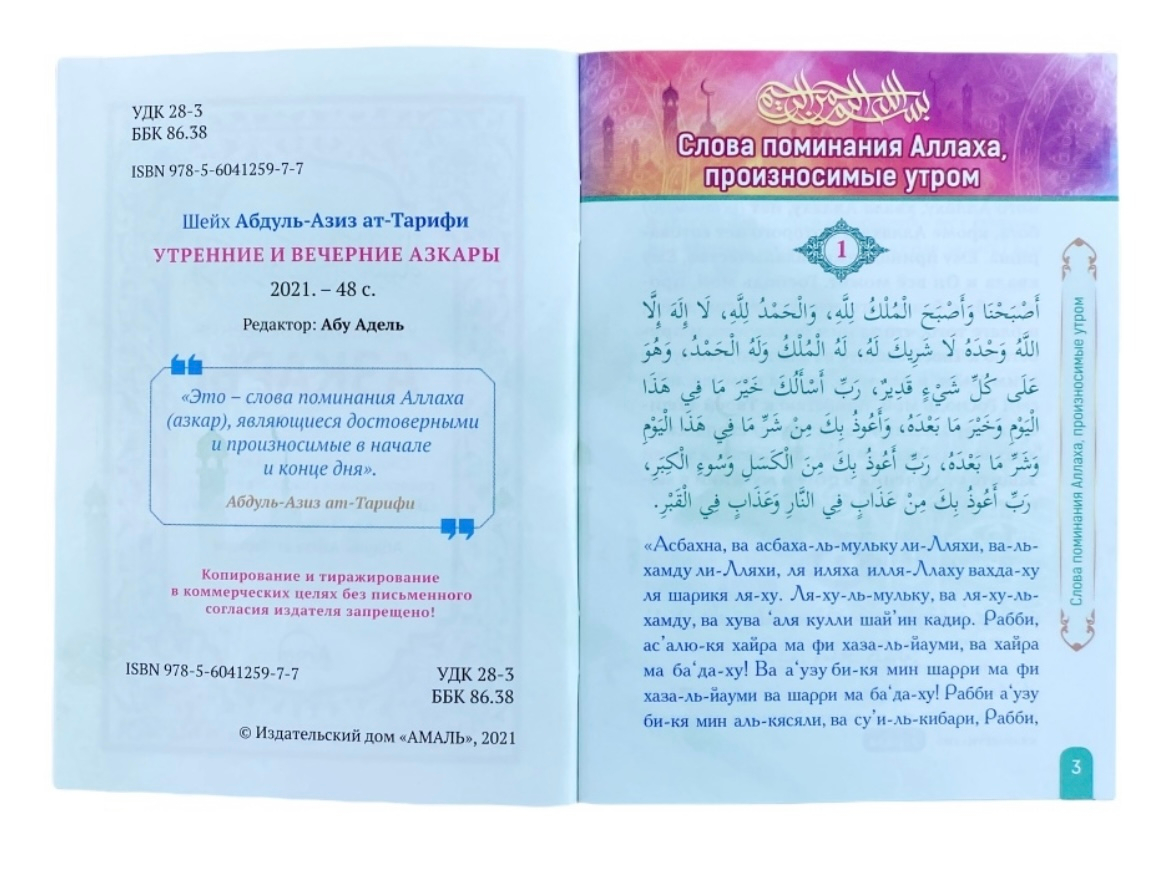 УДК 28-3
ББК 86.38
ISBN 978-5-6041259-7-7
Шейх Абдуль-Азиз ат-Тарифи
УТРЕННИЕ И ВЕЧЕРНИЕ АЗКАРЫ
2021. – 48 с.
Редактор: Абу Адель
«Это – слова поминания Аллаха
(азкар), являющиеся достоверными
и произносимые в начале
и конце дня».
Абдуль-Азиз ат-Тарифи
Копирование и тиражирование
в коммерческих целях без письменного
согласия издателя запрещено!
ISBN 978-5-6041259-7-7
УДК 28-3
ББК 86.38
© Издательский дом «АМАЛЬ», 2021
بسم الله الرحمن الرحيم
Слова поминания Аллаха,
произносимые утром
1
أَصْبَحْنَا وَأَصْبَحَ الْمُلْكُ لِلَّهِ، وَالْحَمْدُ لِلَّهِ، لَا إِلَهَ إِلَّا
اللَّهُ وَحْدَهُ لَا شَرِيكَ لَهُ، لَهُ الْمُلْكُ وَلَهُ الْحَمْدُ، وَهُوَ
عَلَى كُلِّ شَيْءٍ قَدِيرٌ، رَبِّ أَسْأَلُكَ خَيْرَ مَا فِي هَذَا
الْيَوْمِ وَخَيْرَ مَا بَعْدَهُ، وَأَعُوذُ بِكَ مِنْ شَرِّ مَا فِي هَذَا الْيَوْمِ
وَشَرِّ مَا بَعْدَهُ، رَبِّ أَعُوذُ بِكَ مِنَ الْكَسَلِ وَسُوءِ الْكِبَرِ،
رَبِّ أَعُوذُ بِكَ مِنْ عَذَابٍ فِي النَّارِ وَعَذَابٍ فِي الْقَبْرِ.
«Асбахна, ва асбаха-ль-мульку ли-Лляхи, ва-ль-
хамду ли-Лляхи, ля иляха илля-Ллаху вахда-ху
ля шарикя ля-ху. Ля-ху-ль-мульку, ва ля-ху-ль-
хамду, ва хува ‘аля кулли шай’ин кадир. Рабби,
ас’алю-кя хайра ма фи хаза-ль-йауми, ва хайра
ма ба‘да-ху! Ва а‘узу би-кя мин шарри ма фи
хаза-ль-йауми ва шарри ма ба‘да-ху! Рабби а‘узу
би-кя мин аль-кясяли, ва су’и-ль-кибари, Рабби,
Слова поминания Аллаха, произносимые утром
3